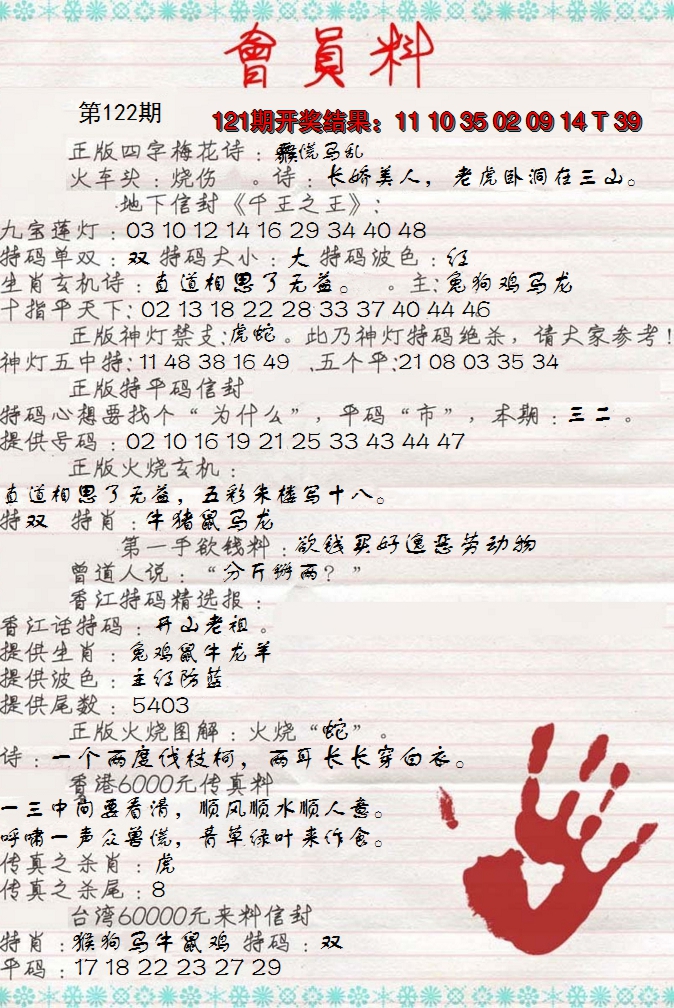 會員料
第122期
121期开奖结果：11 10 35 02 09 14 T 39
正版四字梅花诗：猴慌马乱
火车头：烧伤 。诗：长娇美人，老虎卧洞在三山。
地下信封《千王之王》:
九宝莲灯：03 10 12 14 16 29 34 40 48
特码单双：双 特码大小：大 特码波色：红
生肖玄机诗：直道相思了无益。 。主:兔狗鸡马龙
十指平天下:02 13 18 22 28 33 37 40 44 46
正版神灯禁支:虎蛇。此乃神灯特码绝杀，请大家参考!
神灯五中特:11 48 38 16 49 .五个平:21 08 03 35 34
正版特平码信封
特码心想要找个“为什么”，平码“市”，本期：三二。
提供号码：02 10 16 19 21 25 33 43 44 47
正版火烧玄机：
直道相思了无益，五彩朱楼写十八。
特双 特肖：牛猪鼠马龙
第一手欲钱料：欲钱买好逸恶劳动物
曾道人说：“分斤掰两？”
香江特码精选报：
香江话特码：开山老祖。
提供生肖：兔鸡鼠牛龙羊
提供波色：主红防蓝
提供尾数：5403
正版火烧图解：火烧“蛇”。
诗：一个两度伐枝柯，两耳长长穿白衣。
香港6000元传真料
一三中间要看清，顺风顺水顺人意。
呼啸一声众兽慌，青草绿叶来作食。
传真之杀肖：虎
传真之杀尾：8
台湾60000元来料信封
特肖：猴狗马牛鼠鸡 特码：双
平码：17 18 22 23 27 29